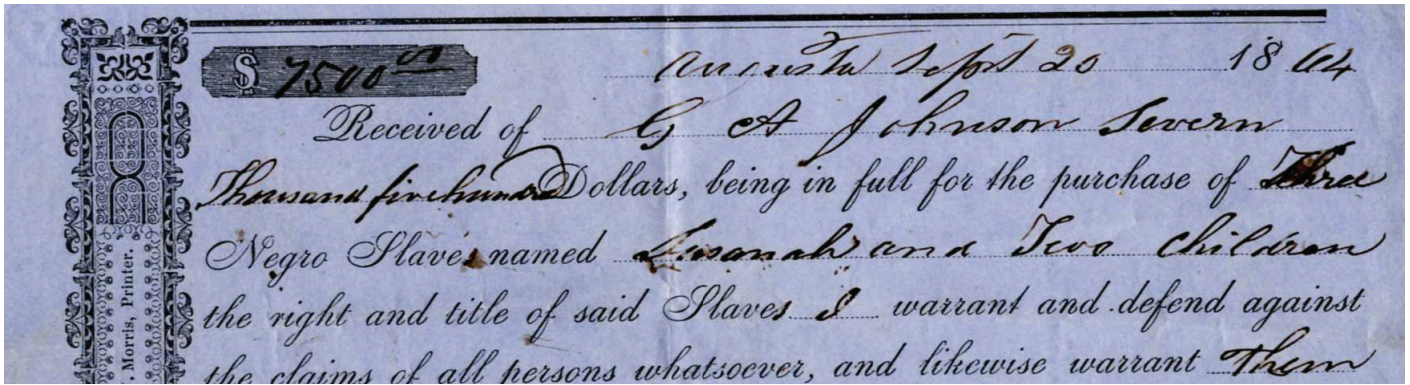 $ 7500 00 Augusta Sept 20 1864
Received of G A Johnson Severn
Thousand five hundred Dollars, being in full for the purchase of Three
Negro Slaves named Susanah and Two Children
the right and title of said Slaves I warrant and defend against
the claims of all persons whatsoever, and likewise warrant Them
. Morris, Printer.